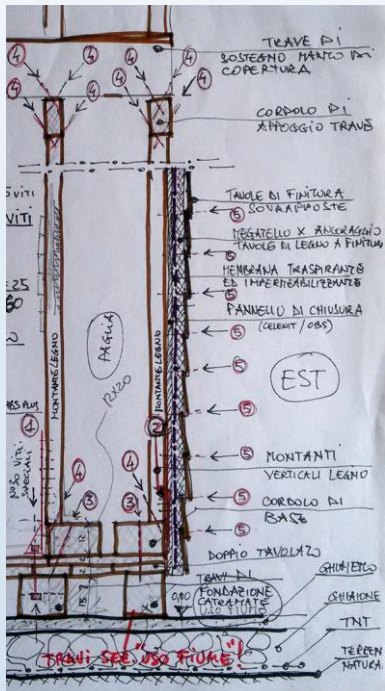 TRAVE DI
SOSTEGNO MANTO DI
COPERTURA
4 4 4 4
4 4 4 4
CORDOLO DI
APPOGGIO TRAVE
VITI
TAVOLE DI FINITURA
SOVRAPPOSTE
5
MEGATELLO X ANCORAGGIO
TAVOLE DI LEGNO A FINITURA
5
MEMBRANA TRASPIRANTE
ED IMPERMEABILIZZANTE
5
PANNELLO DI CHIUSURA
(CELENIT / OBS)
5
PAGLIA
MONTANTE LEGNO
MONTANTE LEGNO
5
EST
12X20
5
1
2
N°30 VITI
SPECIALI
4
4
5
MONTANTI
VERTICALI LEGNO
3
3
5
CORDOLO DI
BASE
5
DOPPIO TAVOLATO
TRAVI DI
FONDAZIONE
CATRAMATE
USO FIUME
0,00
GHIAIETTO
GHIAIONE
TNT
TRAVI SEZ. "USO FIUME"!
TERREN
NATURA